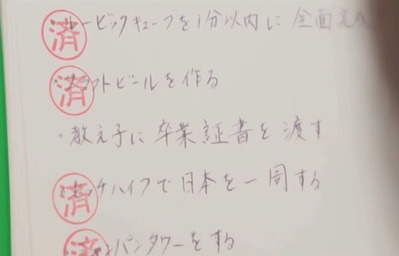 済ービックキューブを1分以内に全面完成
済ラフトビールを作る
・教え子に卒業証書を渡す
済ッチハイクで日本を一周する
済ンパンタワーをする